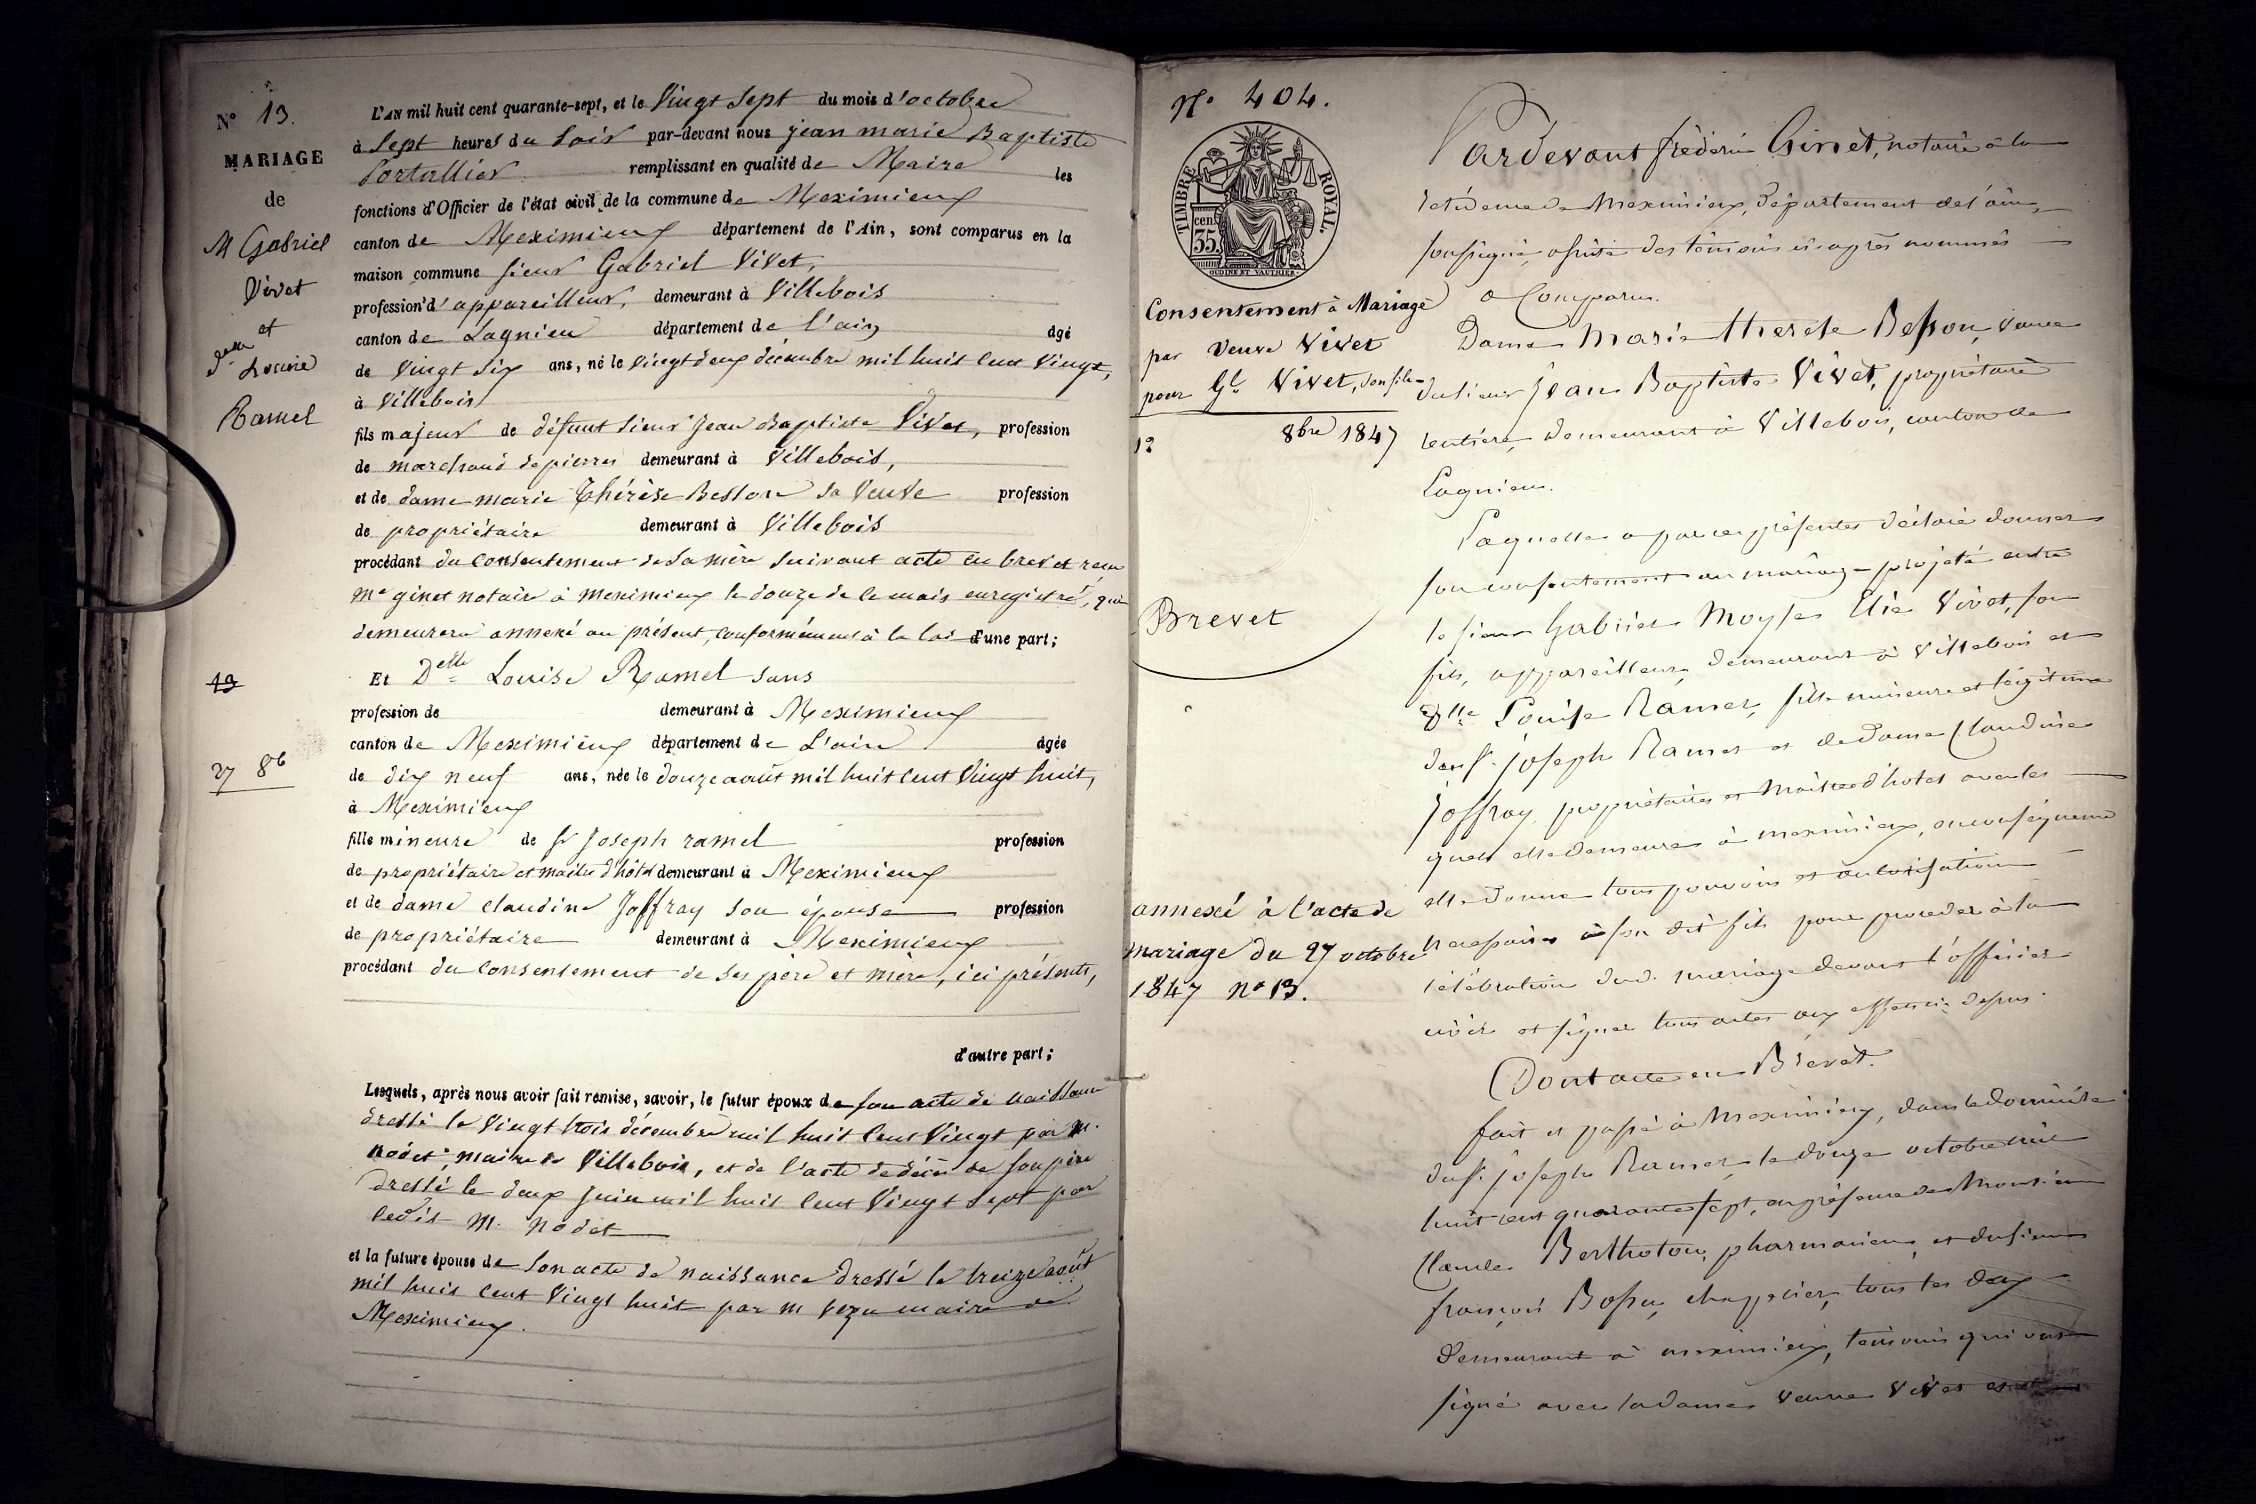 N° 13.
MARIAGE
de
M Gabriel
Vivet
et
Delle
Louise
Ramel
19
27 8b
L'AN mil huit cent quarante-sept, et le Vingt Sept du mois d'octobre
à Sept heures du Soir par-devant nous jean marie Baptiste
Portallier remplissant en qualité de Maire les
fonctions d'Officier de l'état civil de la commune de Meximieux
canton de Meximieux département de l'Ain, sont comparus en la
maison commune sieur Gabriel Vivet,
profession d'appareilleur, demeurant à Villebois
canton de Lagnieu département de l'ain âgé
de Vingt Six ans, né le Vingt deux décembre mil huit Cent Vingt,
à Villebois
fils majeur de défunt Sieur Jean Baptiste Vivet, profession
de marchand de pierres demeurant à Villebois,
et de dame marie Thérèse Besson Sa Veuve profession
de propriétaire demeurant à Villebois
procédant du Consentement de Sa mère Suivant acte en brevet reçu
Me ginet notaire à meximieux le douze de ce mois enregistré, qui
demeurera annexé au présent, conformément à la loi d'une part;
Et Delle Louise Ramel sans
profession de demeurant à Meximieux
canton de Meximieux département de L'ain âgée
de dix neuf ans, née le douze août mil huit Cent Vingt huit,
à Meximieux
fille mineure de Sr Joseph ramel profession
de propriétaire et maitre d'hôtel demeurant à Meximieux
et de dame claudine Joffray son épouse profession
de propriétaire demeurant à Meximieux
procédant du Consentement de Ses père et mère, ici présents,
d'autre part;
Lesquels, après nous avoir fait remise, savoir, le futur époux de son acte de naissance
dressé le Vingt trois décembre mil huit Cent Vingt par M.
Nodet, maire de Villebois, et de l'acte de décès de Son père
dressé le deux juin mil huit Cent Vingt Sept par
ledit M. Nodet
et la future épouse de Son acte de naissance dressé le treize août
mil huit Cent Vingt huit par M Vezu maire de
Meximieux.
N° 404.
TIMBRE ROYAL.
cen. 35.
OUDINE ET VAUTHIER
Consentement à Mariage
par Veuve Vivet
pour Gl Vivet, son fils
12 8bre 1847
Brevet
annexé à l'acte de
mariage du 27 octobre
1847 n° 13.
Pardevant frédéric Ginet, notaire à la
résidence de Meximieux, département de l'ain,
soussigné, assisté des témoins ci-après nommés
a Comparu.
Dame Marie therese Besson, veuve
du sieur Jean Baptiste Vivet, propriétaire
rentière, demeurant à Villebois, canton de
Lagnieu.
Laquelle a par ces présentes déclaré donner
son consentement au mariage projeté entre
le sieur Gabriel Moyse Elie Vivet, son
fils, appareilleur, demeurant à Villebois et
Dlle Louise Ramel, fille mineure et légitime
du Sr. joseph Ramel et de Dame Claudine
Joffray, propriétaires et maitre d'hotel avec les
quels elle demeure à meximieux, en conséquence
elle donne tous pouvoirs et autorisation
nécessaires à son dit fils pour proceder à la
célébration dud. mariage devant l'officier
civil et signer tous actes aux effets ci-dessus.
Dont acte en Brevet.
fait et passé à Meximieux, dans le domicile
du Sr. joseph Ramel, le douze octobre mil
huit cent quarante sept, en présence de Monsieur
Claude Bertholon, pharmacien, et du sieur
françois Bossu, chapelier, tous les deux
demeurant à meximieux, témoins qui ont
signé avec la dame Veuve Vivet et